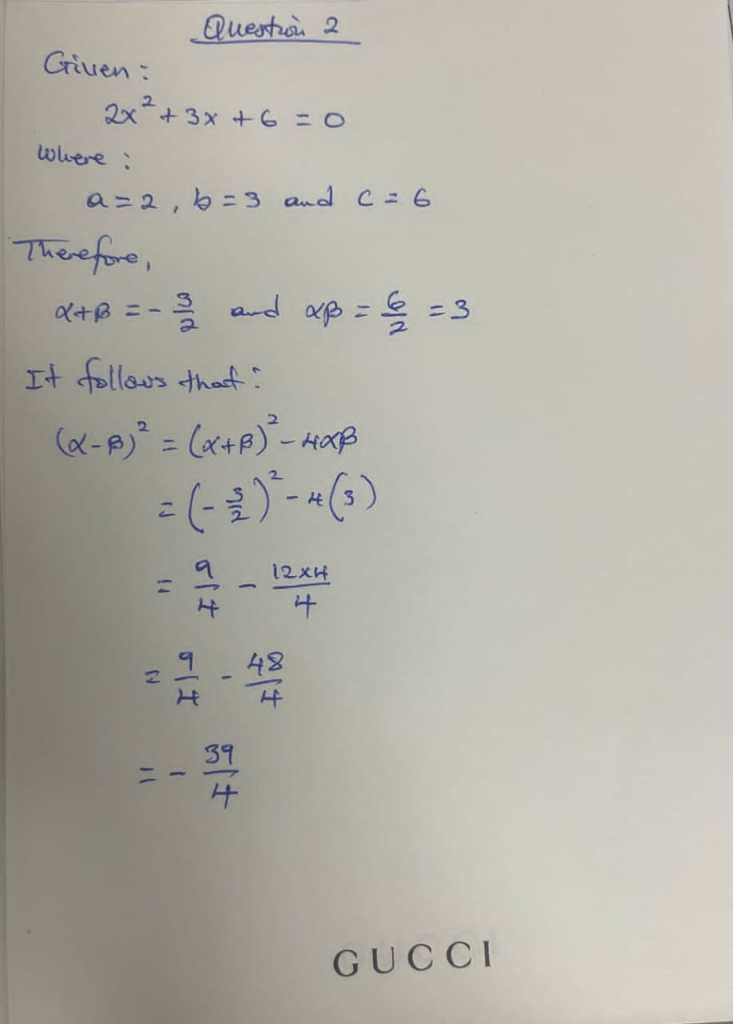 Question 2
Given:
2x² + 3x + 6 = 0
Where:
a = 2, b = 3 and c = 6
Therefore,
α+β = - 3/2 and αβ = 6/2 = 3
It follows that:
(α-β)² = (α+β)² - 4αβ
= (- 3/2)² - 4(3)
= 9/4 - 12×4/4
= 9/4 - 48/4
= - 39/4
GUCCI